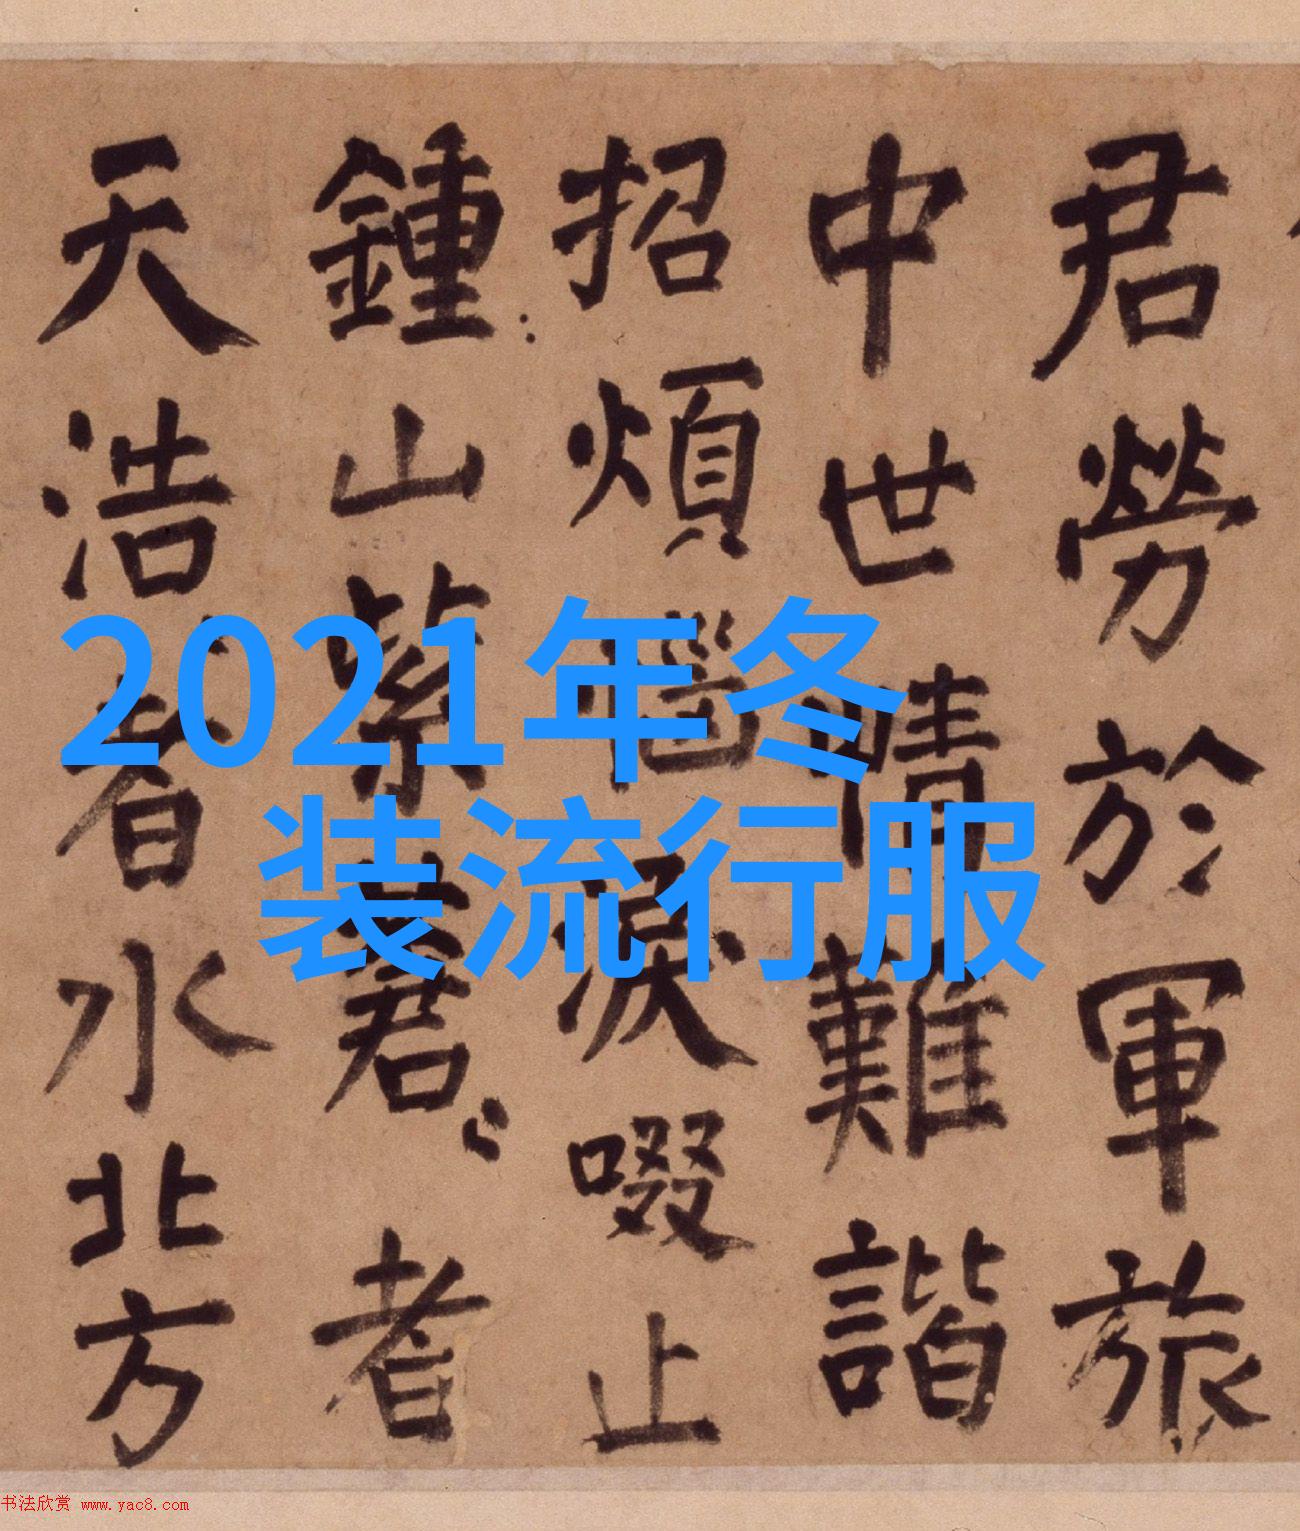 君勞於軍旅
中世情難諧
招煩惱淚啜止
鍾山紫者
天浩者水北方
2021年冬
装流行服
书法欣赏 www.yac8.com